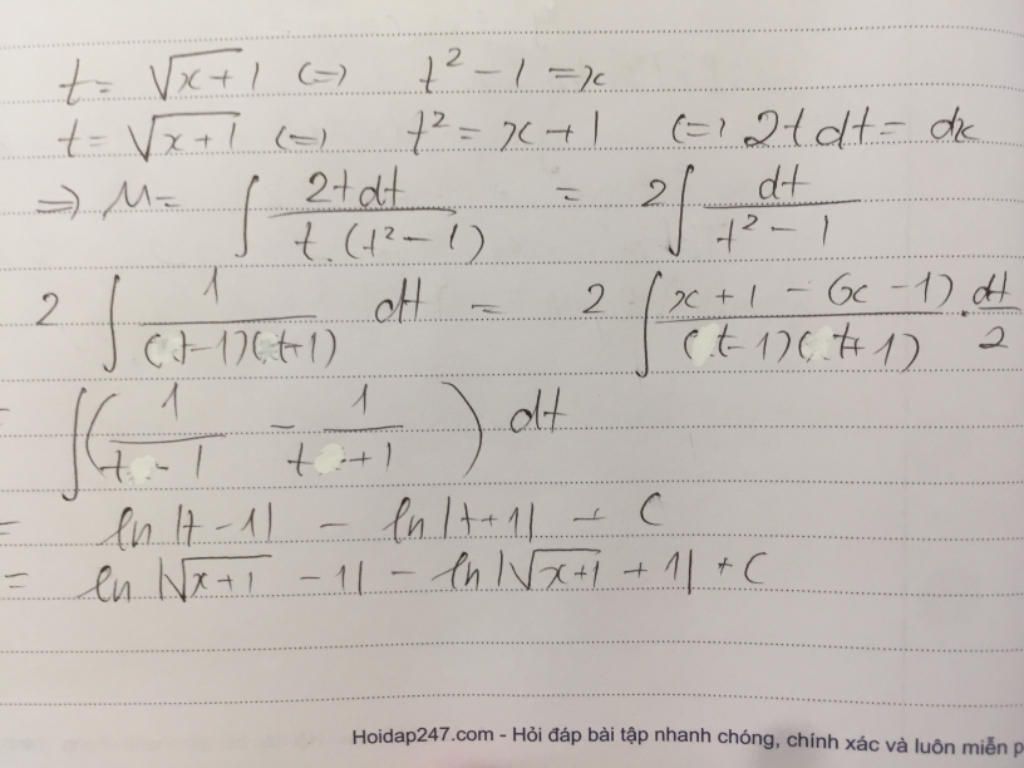 t = √(x+1) (=) t² - 1 = x
t = √(x+1) (=) t² = x + 1 (=) 2t dt = dx
=> M = ∫ 2t dt / t.(t² - 1) = 2∫ dt / t² - 1
2 ∫ 1 / (t-1)(t+1) dt = 2 ∫ x + 1 - (x - 1) / (t-1)(t+1) . dt / 2
= ∫( 1 / t - 1 - 1 / t + 1 ) dt
= ln|t - 1| - ln|t + 1| + C
= ln|√(x+1) - 1| - ln|√(x+1) + 1| + C
Hoidap247.com - Hỏi đáp bài tập nhanh chóng, chính xác và luôn miễn p